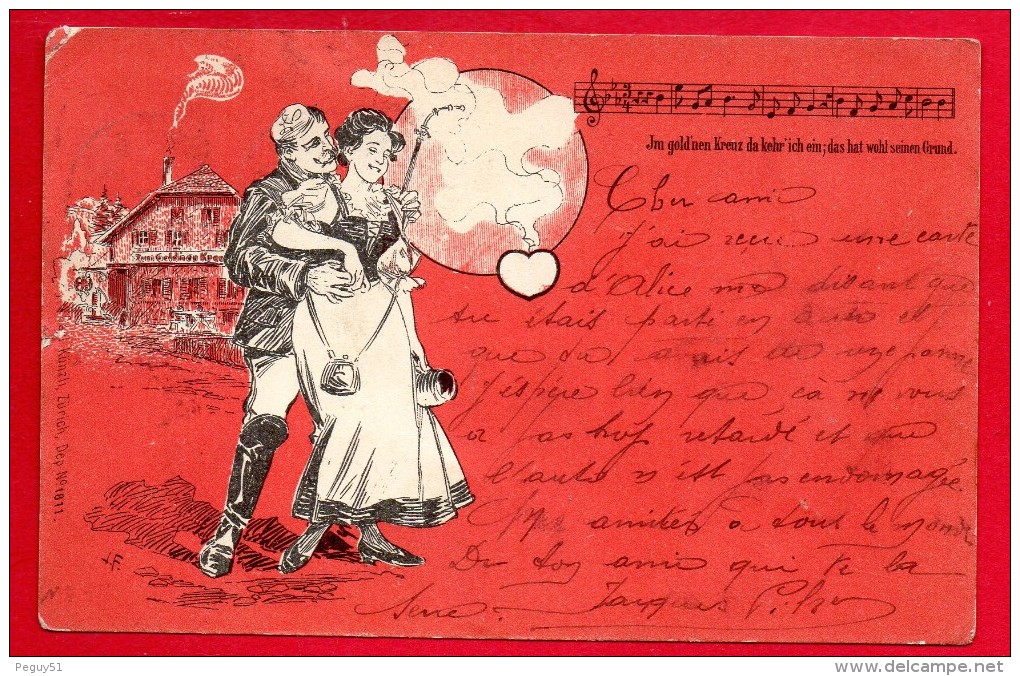 Im gold'nen Kreuz da kehr' ich ein; das hat wohl seinen Grund.
Zum Goldnen Kreuz
Cher ami
J'ai reçu une carte
d'Alice me disant que
tu étais parti en auto et
que tu avais eu une panne
J'espère bien que ça ne vous
a pas trop retardé et que
l'auto n'est pas endomagée
Mes amitiés a tout le monde
De ton ami qui te la
serre. Jacques
Künzli, Zürich, Dep. No. 1811.
HF
Peguy51
delcampe.net